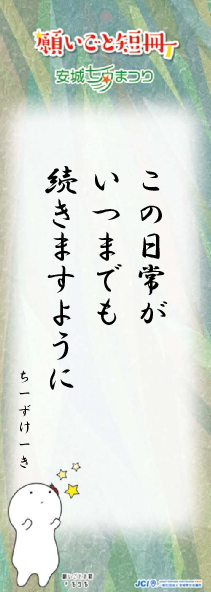 願いごと短冊
安城七夕まつり
この日常が
いつまでも
続きますように
ちーずけーき
JCI